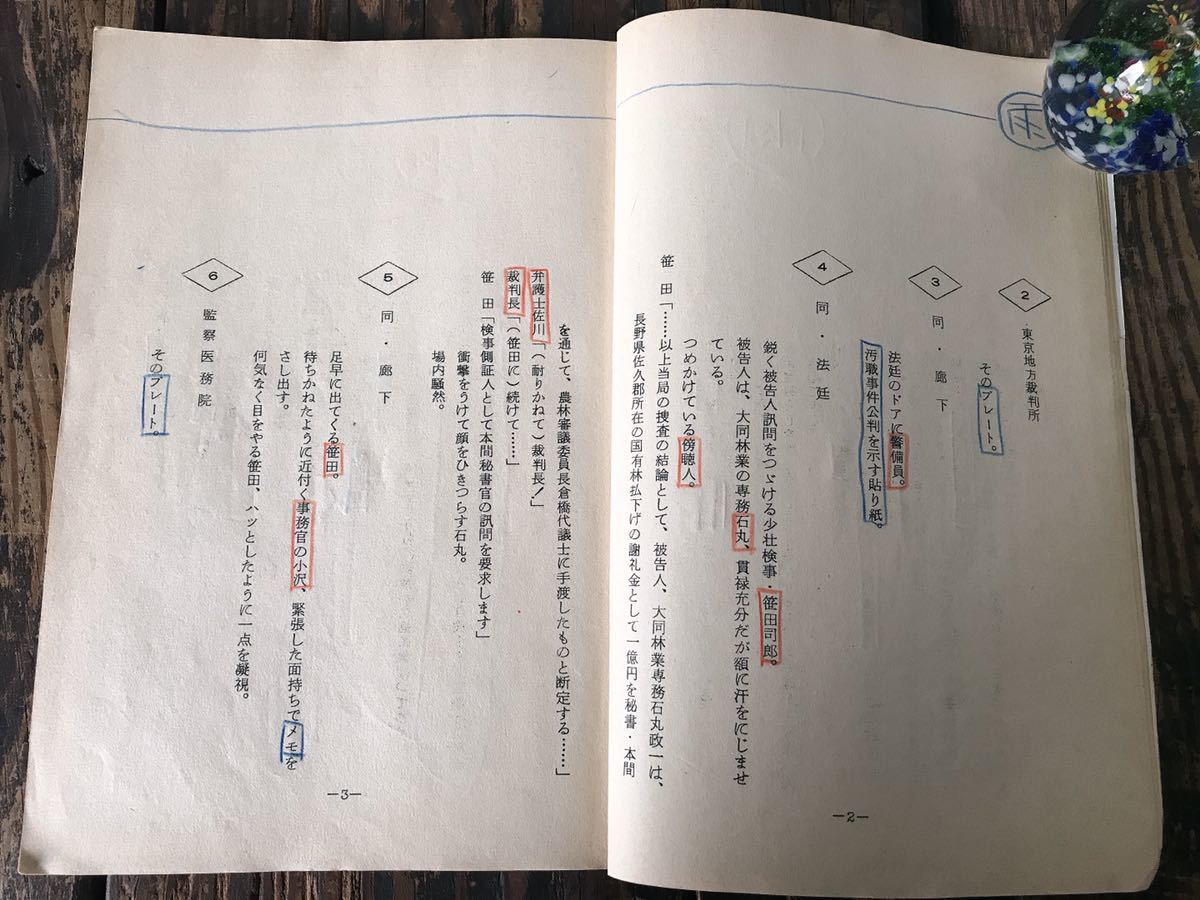 雨
2
東京地方裁判所
そのプレート。
3
同・廊下
法廷のドアに警備員。
汚職事件公判を示す貼り紙。
4
同・法廷
鋭く被告人訊問をつゞける少壮検事・笹田司郎。
被告人は、大同林業の専務石丸、貫禄充分だが額に汗をにじませ
ている。
つめかけている傍聴人。
笹田「……以上当局の捜査の結論として、被告人、大同林業専務石丸政一は、
長野県佐久郡所在の国有林払下げの謝礼金として一億円を秘書・本間
—2—
を通じて、農林審議委員長倉橋代議士に手渡したものと断定する……」
弁護士佐川「(耐りかねて)裁判長!」
裁判長「(笹田に)続けて……」
笹田「検事側証人として本間秘書官の訊問を要求します」
衝撃をうけて顔をひきつらす石丸。
場内騒然。
5
同・廊下
足早に出てくる笹田。
待ちかねたように近付く事務官の小沢、緊張した面持ちでメモを
さし出す。
何気なく目をやる笹田、ハッとしたように一点を凝視。
6
監察医務院
そのプレート。
—3—